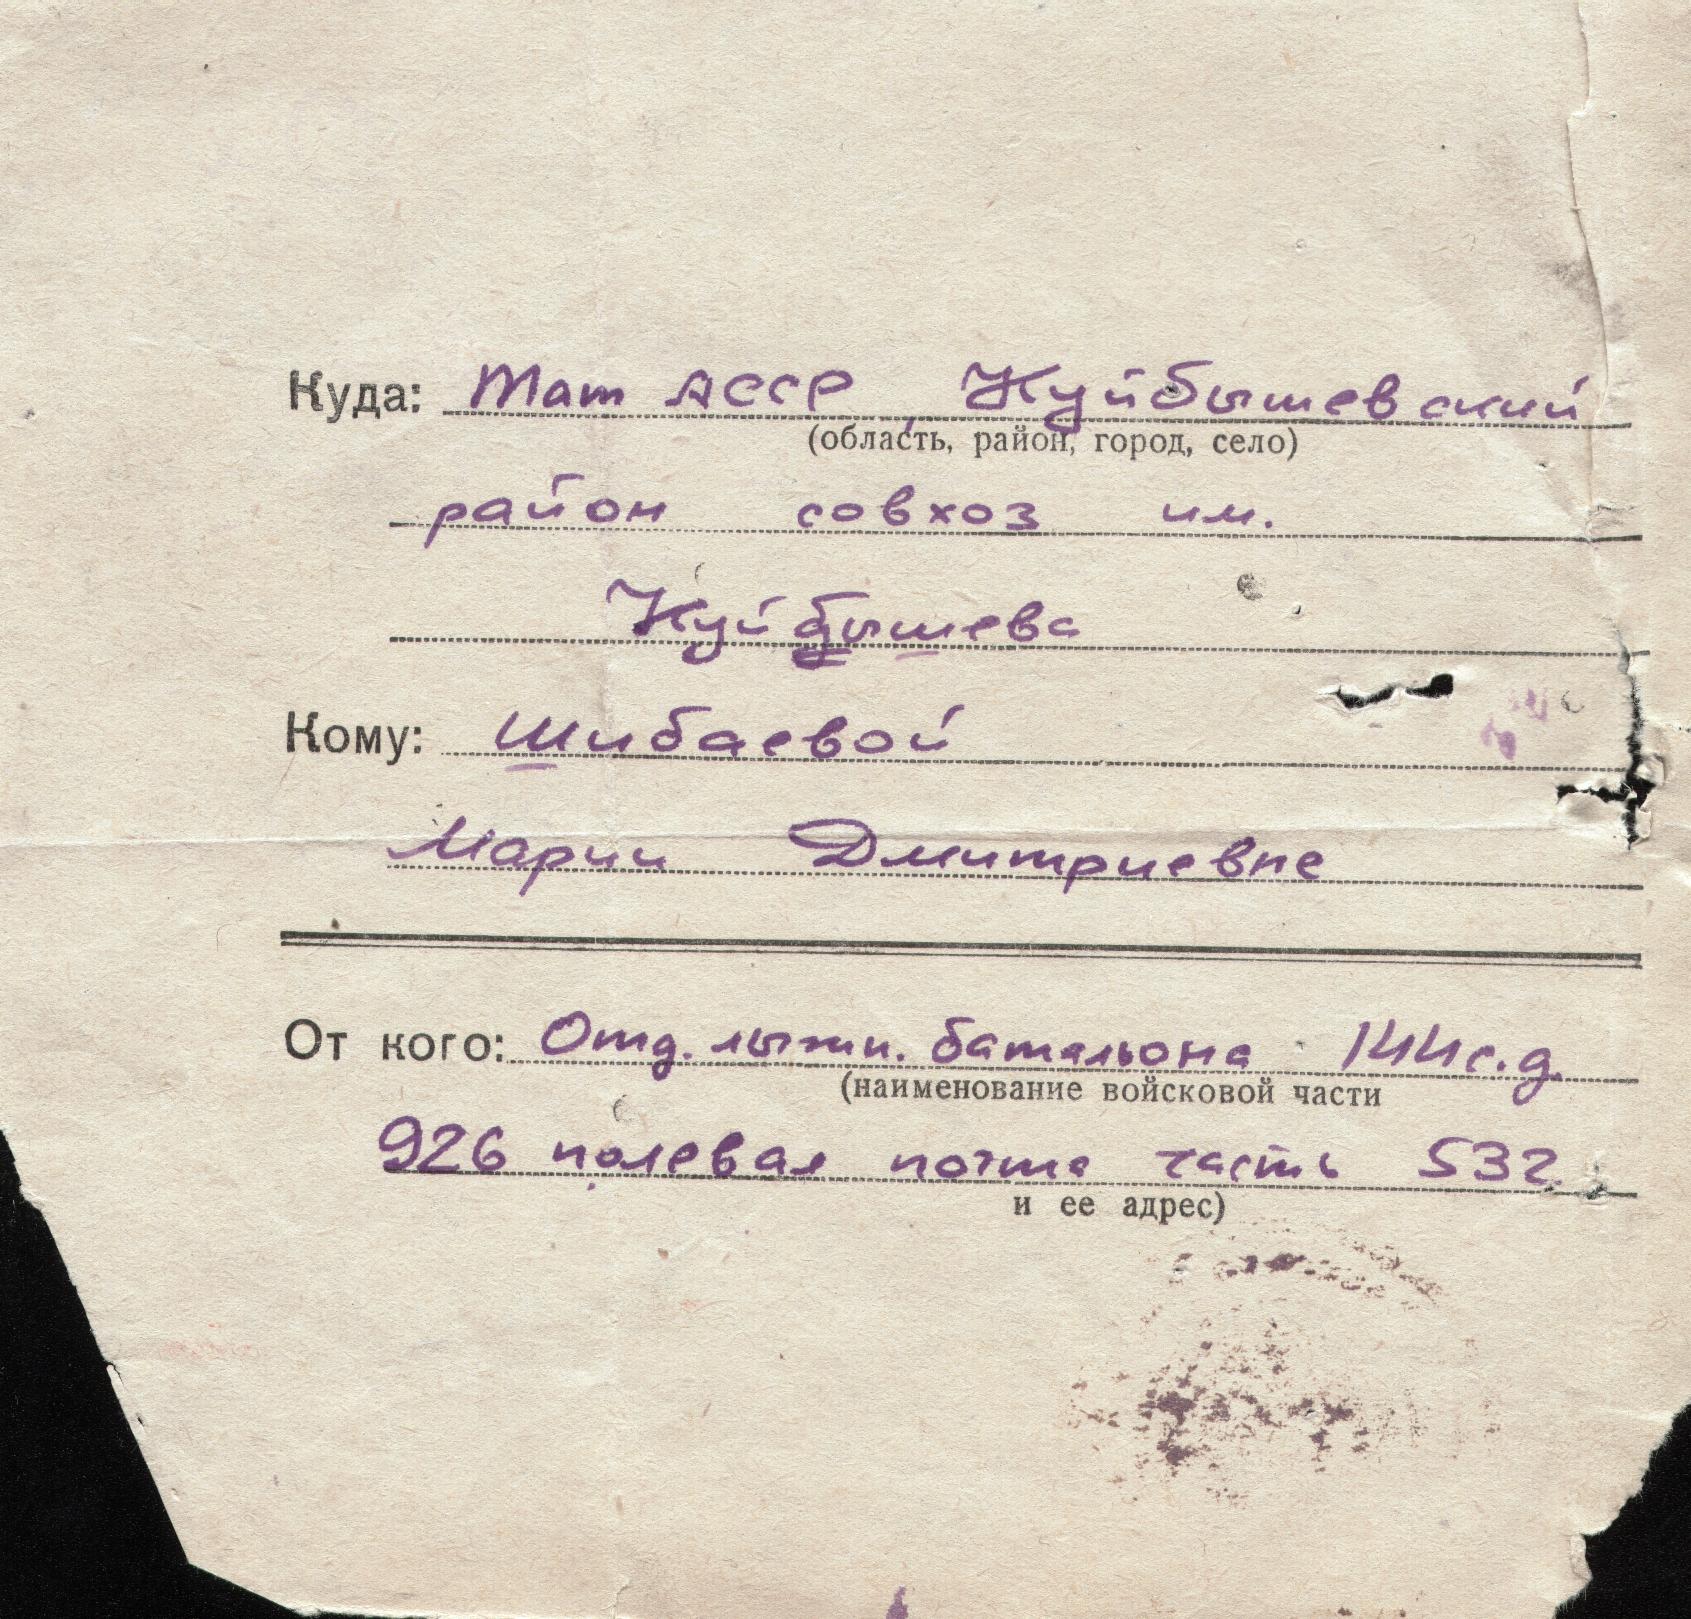 Куда: Тат АССР, Куйбышевский
(область, район, город, село)
район совхоз им.
Куйбышева
Кому: Шибаевой
Марии Дмитриевне
От кого: Отд. лыжн. батальона 144 с.д.
(наименование войсковой части
926 полевая почта часть 532
и ее адрес)